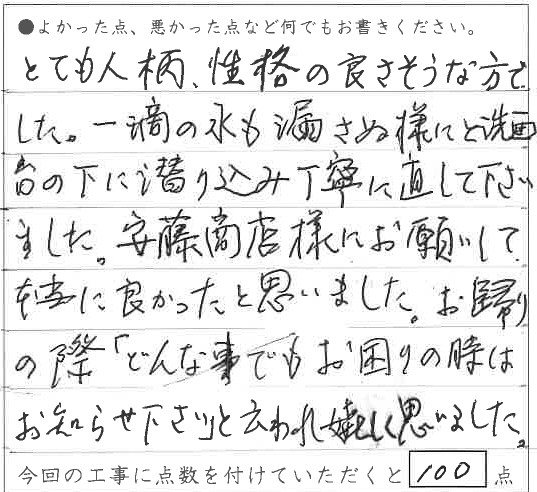 ●よかった点、悪かった点など何でもお書きください。
とても人柄、性格の良さそうな方で
した。一滴の水も漏さぬ様にと洗面
台の下に潜り込み丁寧に直して下さい
ました。安藤商店様にお願いして
本当に良かったと思いました。お帰り
の際「どんな事でもお困りの時は
お知らせ下さい」と云われ嬉しく思いました。
今回の工事に点数を付けていただくと 100 点